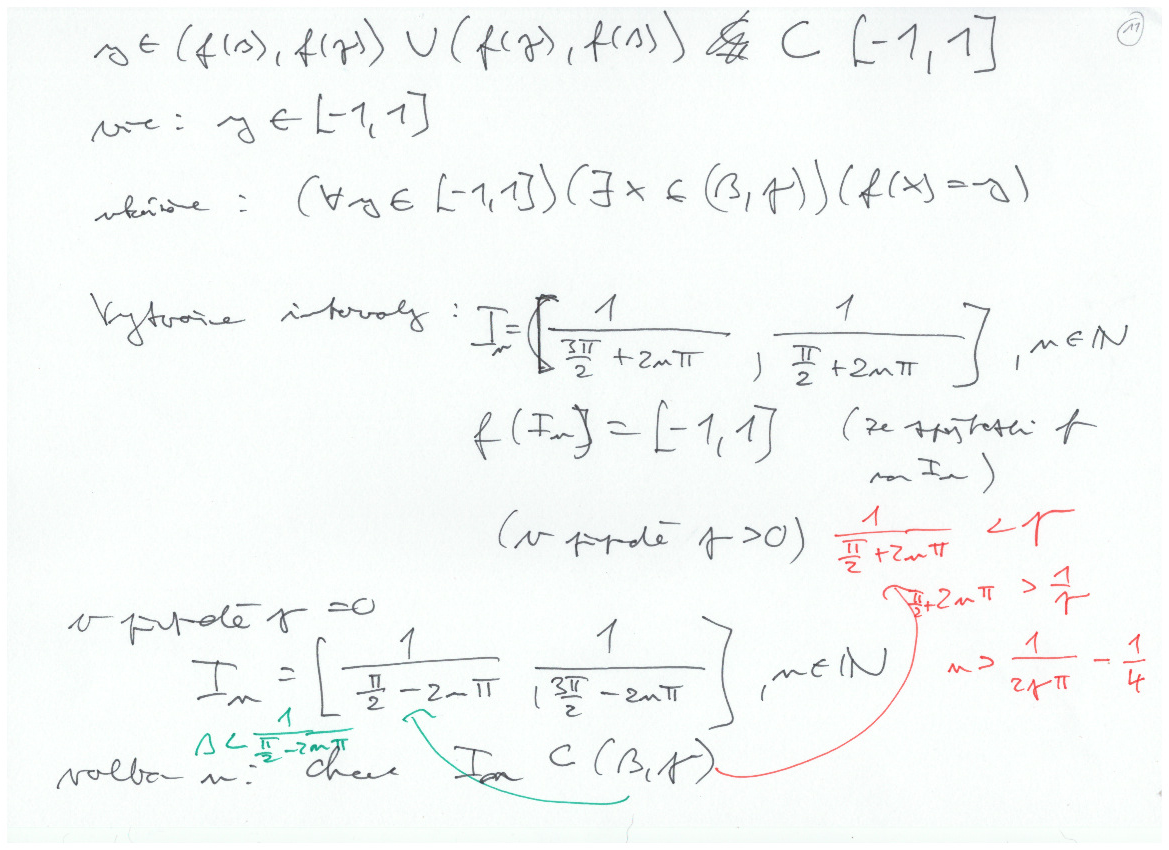 11
y ∈ (f(β), f(γ)) ∪ (f(γ), f(β)) ⊂ [-1, 1]
víc: y ∈ [-1, 1]
ukážeme: (∀y ∈ [-1,1]) (∃x ∈ (β, γ)) (f(x) = y)
Vytvoříme intervaly: I_n = [1/(3π/2 + 2nπ), 1/(π/2 + 2nπ)], n ∈ ℕ
f(I_n) = [-1, 1] (ze spojitosti f
na I_n)
(v případě γ > 0) 1/(π/2 + 2nπ) < γ
π/2 + 2nπ > 1/γ
v případě γ = 0
I_n = [1/(π/2 - 2nπ), 1/(3π/2 - 2nπ)], n ∈ ℕ n > 1/(2γπ) - 1/4
β < 1/(π/2 - 2nπ)
volba n: chceme I_n ⊂ (β, γ)